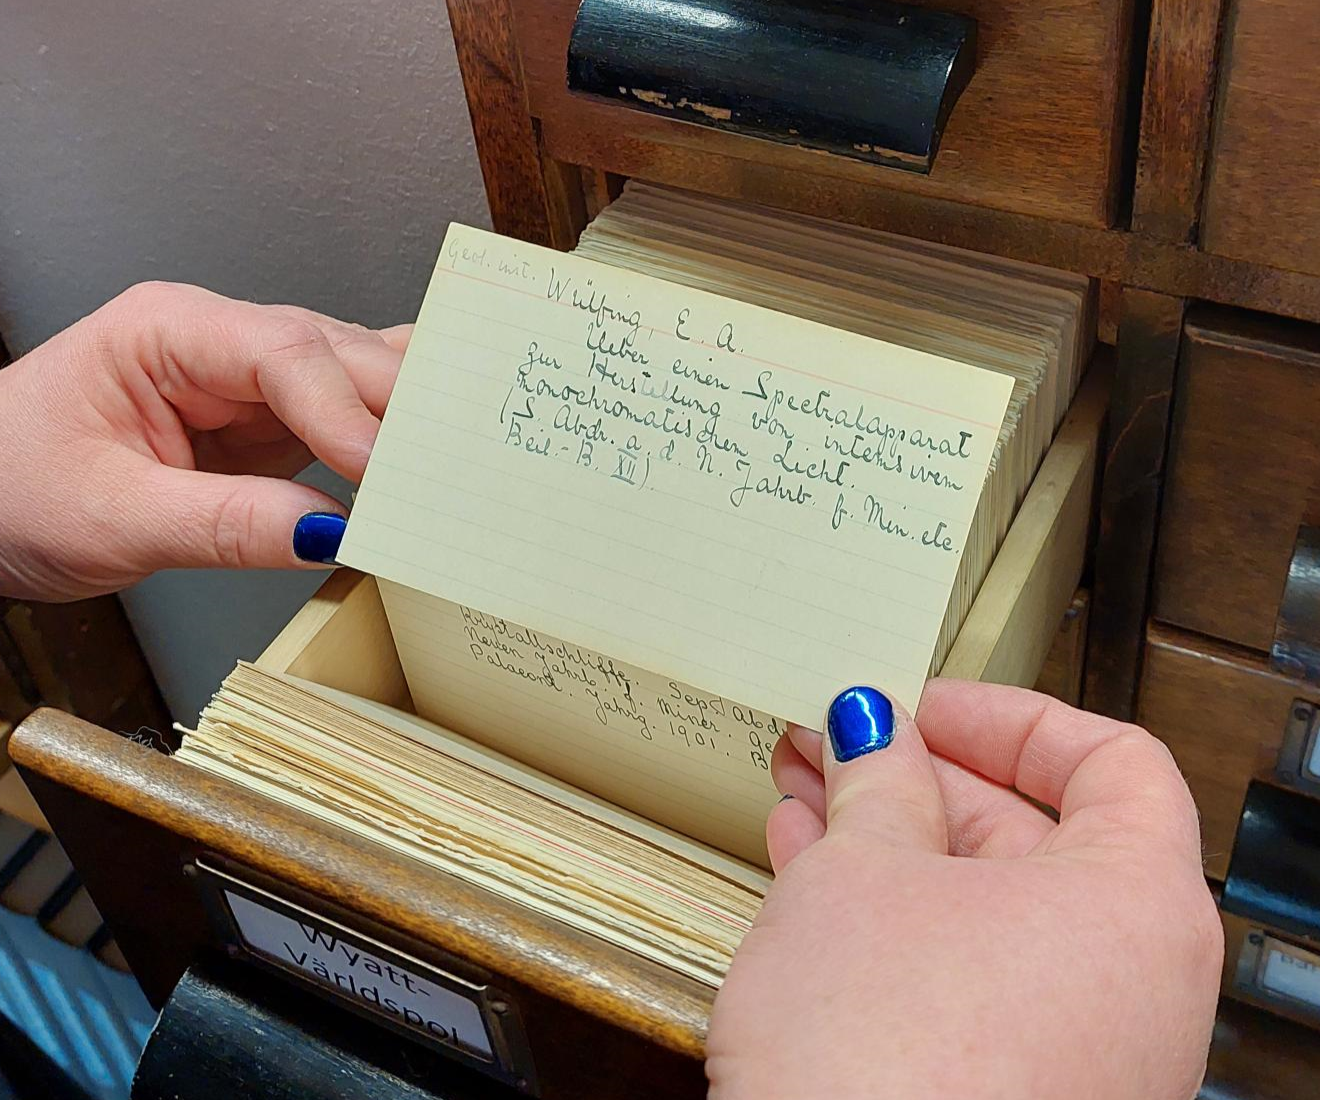 Geol. inst.
Wülfing, E. A.
Ueber einen Spectralapparat
zur Herstellung von intensivem
monochromatischen Licht.
(S. Abdr. a. d. N. Jahrb. f. Min. etc.
Beil.-B. XII)
Krystallschliffe. Sep. Abdr.
Neuen Jahrb. f. Miner. Ge
Palaeont. Jahrg. 1901. B
Wyatt-
Världspol